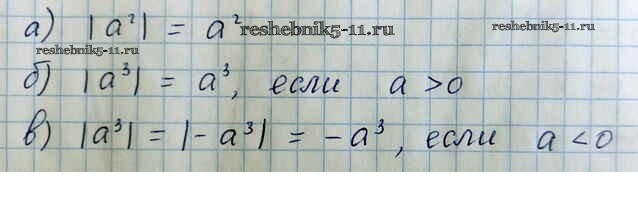 а) |a²| = a² reshebnik5-11.ru reshebnik5-11.ru
reshebnik5-11.ru
б) |a³| = a³, если a > 0
в) |a³| = |- a³| = - a³, если a < 0